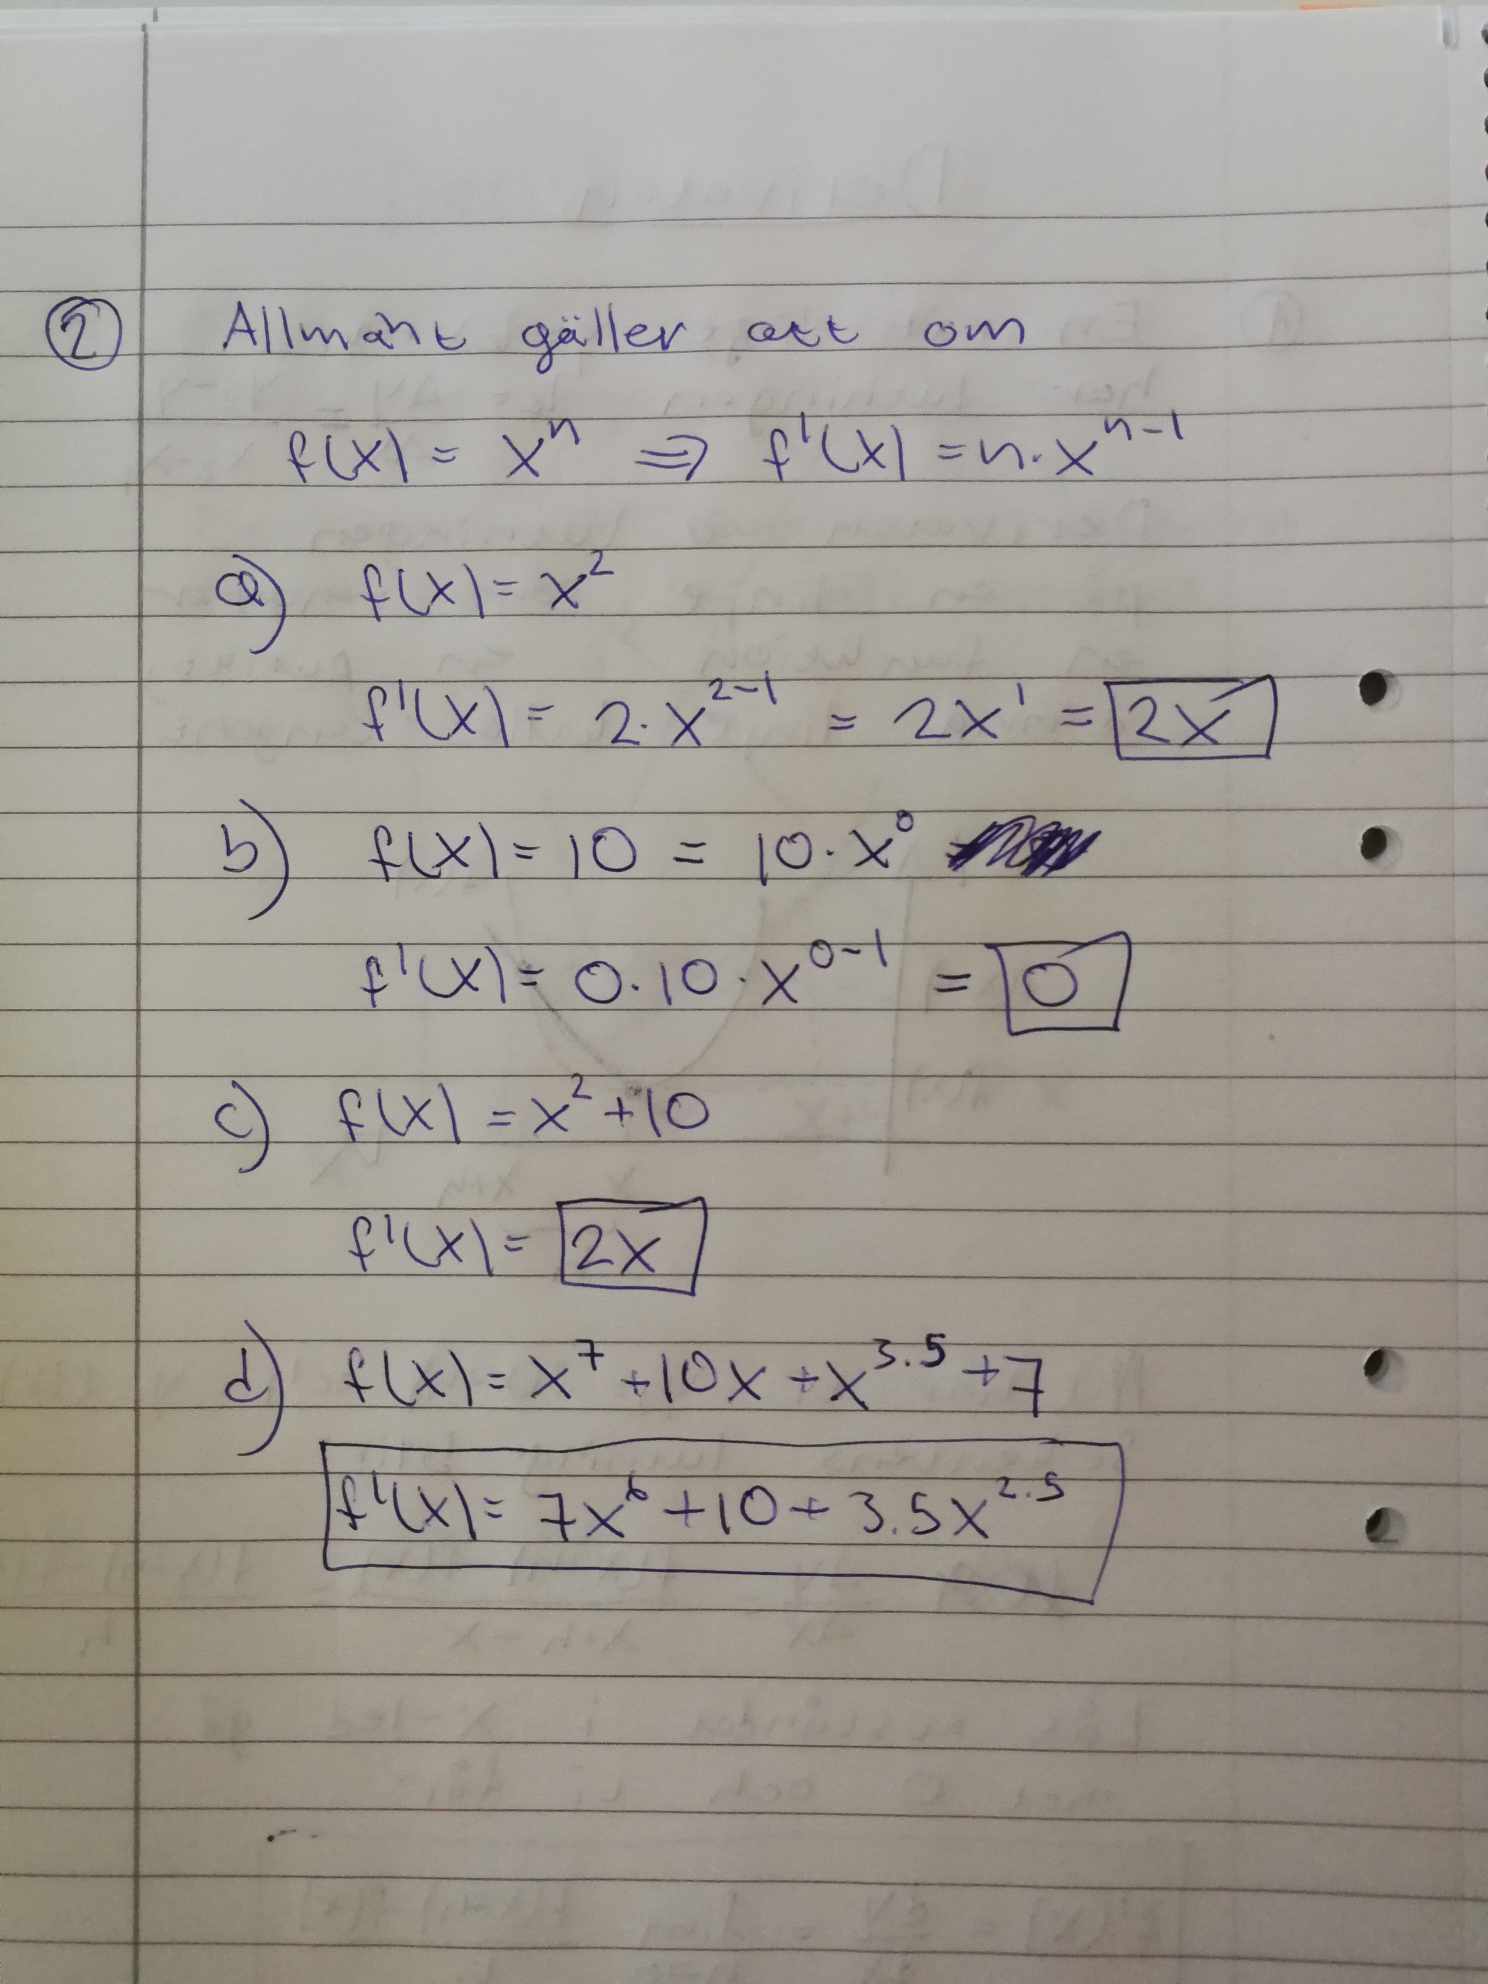 2 Allmänt gäller att om
f(x) = xⁿ ⇒ f'(x) = n·xⁿ⁻¹
a) f(x) = x²
f'(x) = 2·x²⁻¹ = 2x¹ = 2x
b) f(x) = 10 = 10·x⁰
f'(x) = 0·10·x⁰⁻¹ = 0
c) f(x) = x²+10
f'(x) = 2x
d) f(x) = x⁷+10x+x^3.5+7
f'(x) = 7x⁶+10+3.5x^2.5